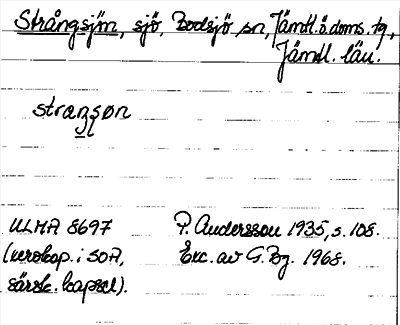 Strångsjön, sjö, Bodsjö sn, Jämtl.ö.doms.tg,
Jämtl. län.
strangsøn
ULMA 8697 P. Andersson 1935, s. 108.
(verskap. i SOA, Exc. av G. Bg. 1968.
särsk. kapsel).